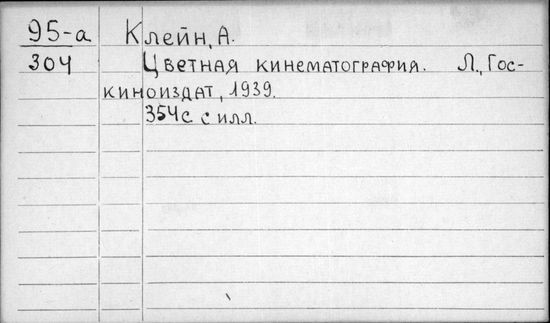 95-а Клейн, А.
304 Цветная кинематография. Л., Гос-
киноиздат, 1939.
354с с илл.